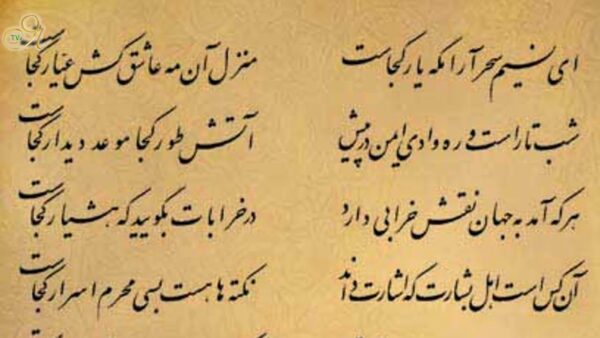 TV
ای نسیم سحر آرامگه یار کجاست    منزل آن مه عاشق کش عیار کجاست
شب تار است و ره وادی ایمن در پیش    آتش طور کجا موعد دیدار کجاست
هر که آمد به جهان نقش خرابی دارد    در خرابات بگویید که هشیار کجاست
آن کس است اهل بشارت که اشارت داند    نکته ها هست بسی محرم اسرار کجاست